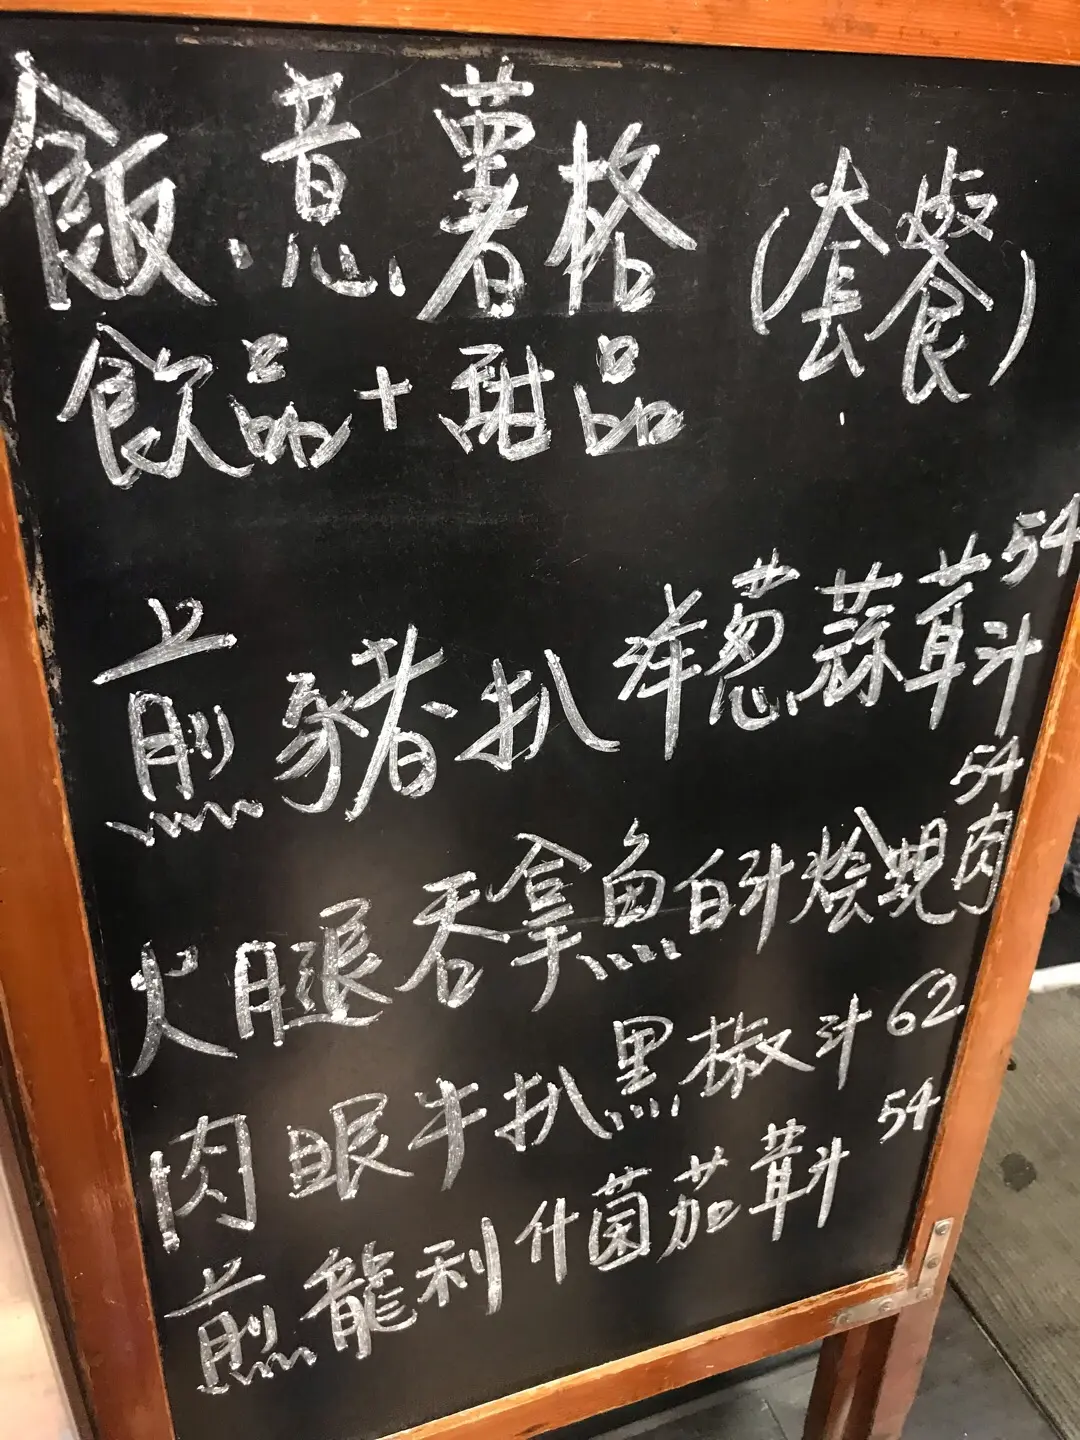 飯．意．薯格 (套餐)
飲品+甜品
煎豬扒洋葱蒜茸汁 54
火腿吞拿魚白汁燴蜆肉 54
肉眼牛扒黑椒汁 62
煎龍利什菌茄茸汁 54